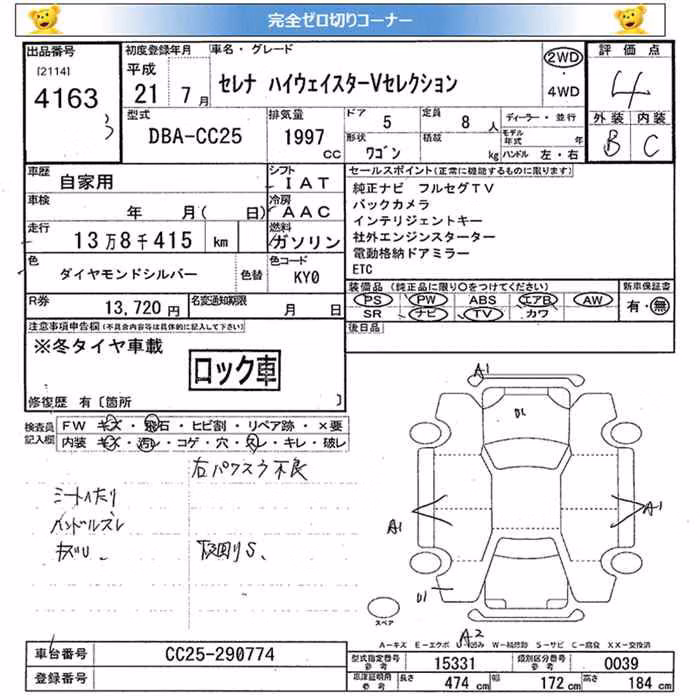 完全ゼロ切りコーナー
出品番号 初度登録年月 車名・グレード 2WD 評価点
[2114] 平成 セレナ ハイウェイスターVセレクション 4
4163 21年 7月 4WD
3 型式 排気量 ドア 5 定員 8人 ディーラー・並行 外装 内装
DBA-CC25 1997 CC 形状 ワゴン 積載 kg モデル年式 年 B C
ハンドル 左・右
車歴 自家用 シフト IAT セールスポイント(正常に機能するものに限ります)
車検 年 月( 日) 冷房 AAC 純正ナビ フルセグTV
バックカメラ
走行 13万8千415 km 燃料 ガソリン インテリジェントキー
社外エンジンスターター
色 ダイヤモンドシルバー 色替 色コード KY0 電動格納ドアミラー
ETC
R券 13,720円 名変通知期限 月 日 装備品(純正品に限り○をつけてください) 新車保証書
PS PW ABS エアB AW 有・無
SR ナビ TV カワ
注意事項申告欄(不具合内容等は具体的に記入して下さい) 後日品
※冬タイヤ車載
ロック車
修復歴 有〔箇所 〕
検査員記入欄 FW キズ・飛石・ヒビ割・リペア跡・×要
内装 キズ・汚レ・コゲ・穴・スレ・キレ・破レ
右パワスラ不良
シートヘたり
ハンドルズレ
キズU、 下回りS、
A1
U1
A1 A1
U1
スペア
A2
A-キズ E-エクボ U-凹み W-補修跡 S-サビ C-腐食 XX-交換済
車台番号 CC25-290774 型式指定番号 参考 15331 類別区分番号 参考 0039
登録番号 車庫証明用 参考 長さ 474cm 幅 172cm 高さ 184cm